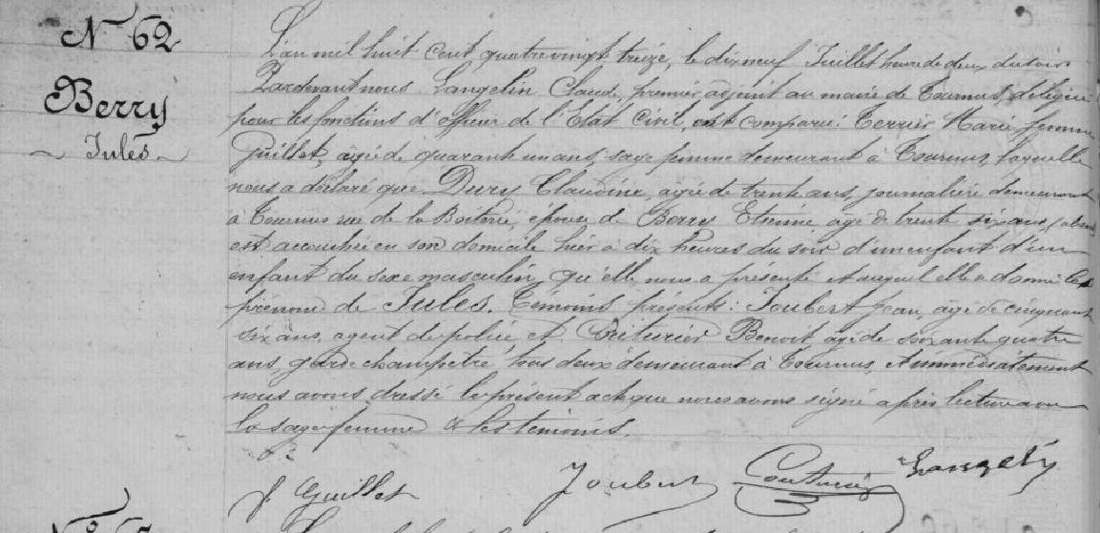 N° 62
Berry
Jules
L'an mil huit cent quatrevingt treize, le dix neuf Juillet heure de deux du soir
Pardevant nous Langelin Claude, premier adjoint au maire de Tournus, délégué
pour les fonctions d'officier de l'Etat Civil, est comparue: Terrier Marie femme
Guillet, agée de quarante un ans, sage femme demeurant à Tournus, laquelle
nous a déclaré que Dury Claudine, agée de trente ans, journalière demeurant
à Tournus rue de la épouse de Berry Etienne, agé de trente six ans,
est accouchée en son domicile hier à dix heures du soir d'un enfant d'un
enfant du sexe masculin, qu'elle nous a présenté et auquel elle a donné les
prénoms de Jules. Témoins présents: Joubert Jean, agé de cinquante
six ans, agent de police et Couturier Benoit agé de soixante quatre
ans, garde champetre, tous deux demeurant à Tournus. Et immédiatement
nous avons dressé le présent acte que nous avons signé après lecture avec
la sage femme & les témoins.
f. Guillet Joubert Couturier Langelin